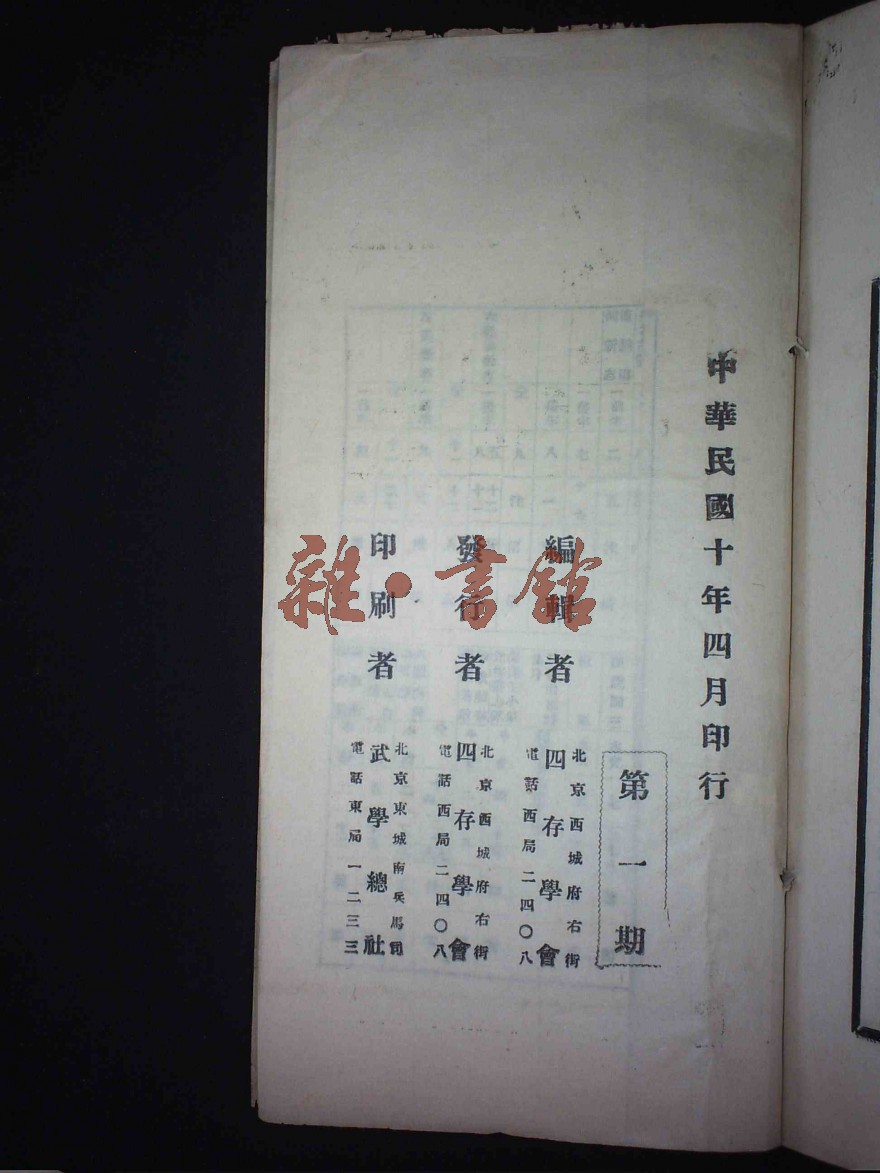 中華民國十年四月印行
第一期
編輯者
北京西城府右街
四存學會
電話西局二四〇八
發行者
北京西城府右街
四存學會
電話西局二四〇八
印刷者
北京東城南兵馬司
武學總社
電話東局一二三三
雜·書館